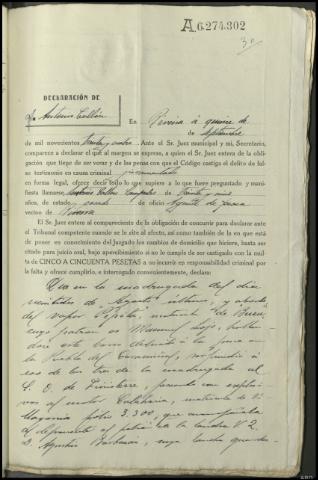 A 6.274.302
3º
DECLARACIÓN DE
En Riveira á quince de
de Septiembre
de mil novecientos treinta y cuatro. Ante el Sr. Juez municipal y mi, Secretario,
comparece a declarar el que al margen se expresa, a quien el Sr. Juez entera de la obli-
gación que tiene de ser veraz y de las penas con que el Código castiga el delito de falso
testimonio en causa criminal
en forma legal, ofrece decir todo lo que supiere a lo que fuere preguntado y mani-
fiesta llamarse de treinta y
años, de estado de oficio Agente de pesca
vecino de Riveira
El Sr. Juez entera al compareciente de la obligación de concurrir para declarar ante
el Tribunal competente cuando se le cite al efecto, así como también de la en que está
de poner en conocimiento del Juzgado los cambios de domicilio que hiciere, hasta ser
citado para juicio oral, bajo apercibimiento si no lo cumple de ser castigado con la mul-
ta de CINCO A CINCUENTA PESETAS o a incurrir en responsabilidad criminal por
la falta y ofrece cumplirlo, e interrogado convenientemente, declara:
Que en la madrugada del día
veintidos de Agosto último, y a bordo
del vapor Pepita, matrícula de Bueu,
cuyo patron es Manuel
este barco dedicado a la pesca en
la Puebla del Caramiñal, sorprendió á
eso de las tres de la madrugada al
S. O. de Finisterre, pescando con explosi-
vos al motor matrícula de Vi-
llagarcía folio 3.300, que
el deponente al patrón de la lancha V 2
D. Agustín cuya lancha que da-